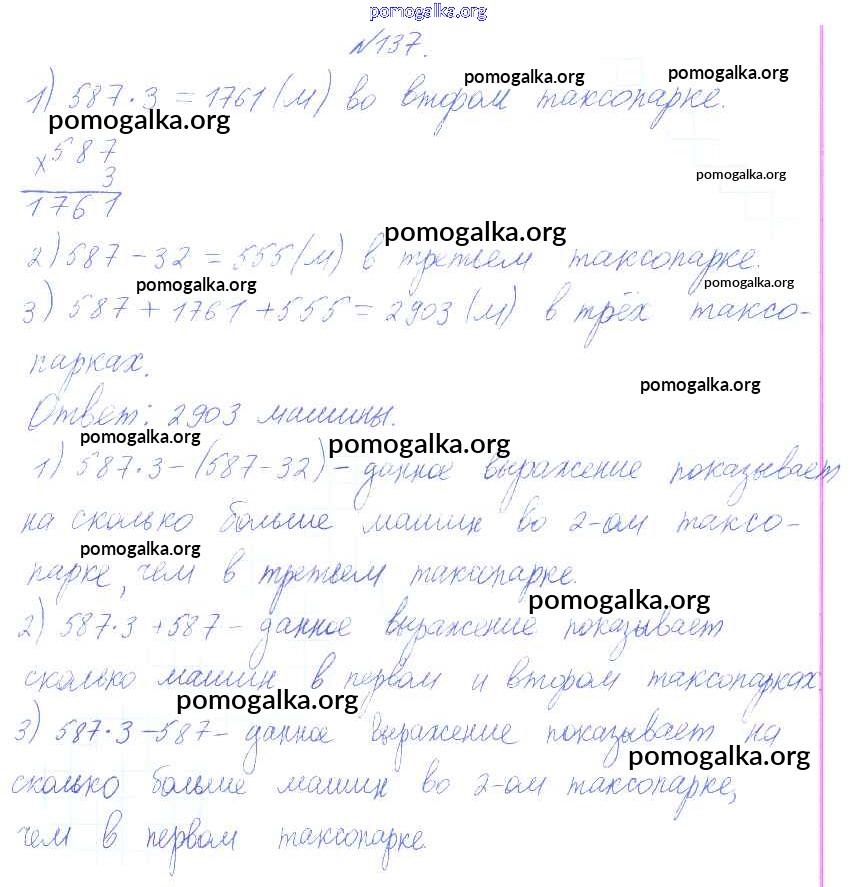 pomogalka.org
№137.
pomogalka.org pomogalka.org
1) 587·3 = 1761 (м) во втором таксопарке.
pomogalka.org
×587
3
1761
pomogalka.org
pomogalka.org
2) 587 – 32 = 555 (м) в третьем таксопарке.
pomogalka.org pomogalka.org
3) 587 + 1761 + 555 = 2903 (м) в трёх таксо-
парках.
pomogalka.org
Ответ: 2903 машины.
pomogalka.org pomogalka.org
1) 587·3 – (587 – 32) – данное выражение показывает
на сколько больше машин во 2-ом таксо-
pomogalka.org
парке, чем в третьем таксопарке.
pomogalka.org
2) 587·3 + 587 – данное выражение показывает
сколько машин в первом и втором таксопарках.
pomogalka.org
3) 587·3 – 587 – данное выражение показывает на
pomogalka.org
сколько больше машин во 2-ом таксопарке,
чем в первом таксопарке.